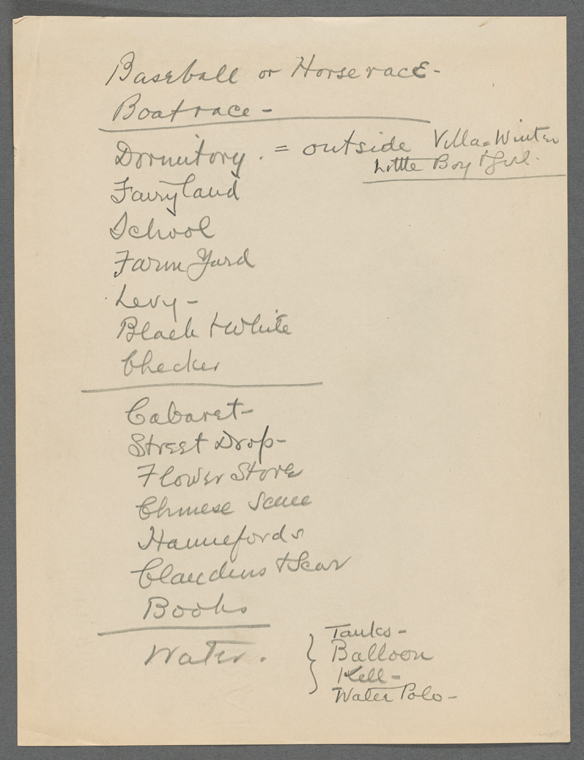 Baseball or Horserace-
Boatrace-
Dormitory. = outside Villa Winter
Little Boy + Girl.
Fairyland
School
Farm Yard
Levy-
Black + White
Checker
Cabaret-
Street Drop-
Flower Store
Chinese Scene
Hannefords
Claudius + Scar
Books
Water. { Tanks-
Balloon
Kell-
Water Polo-